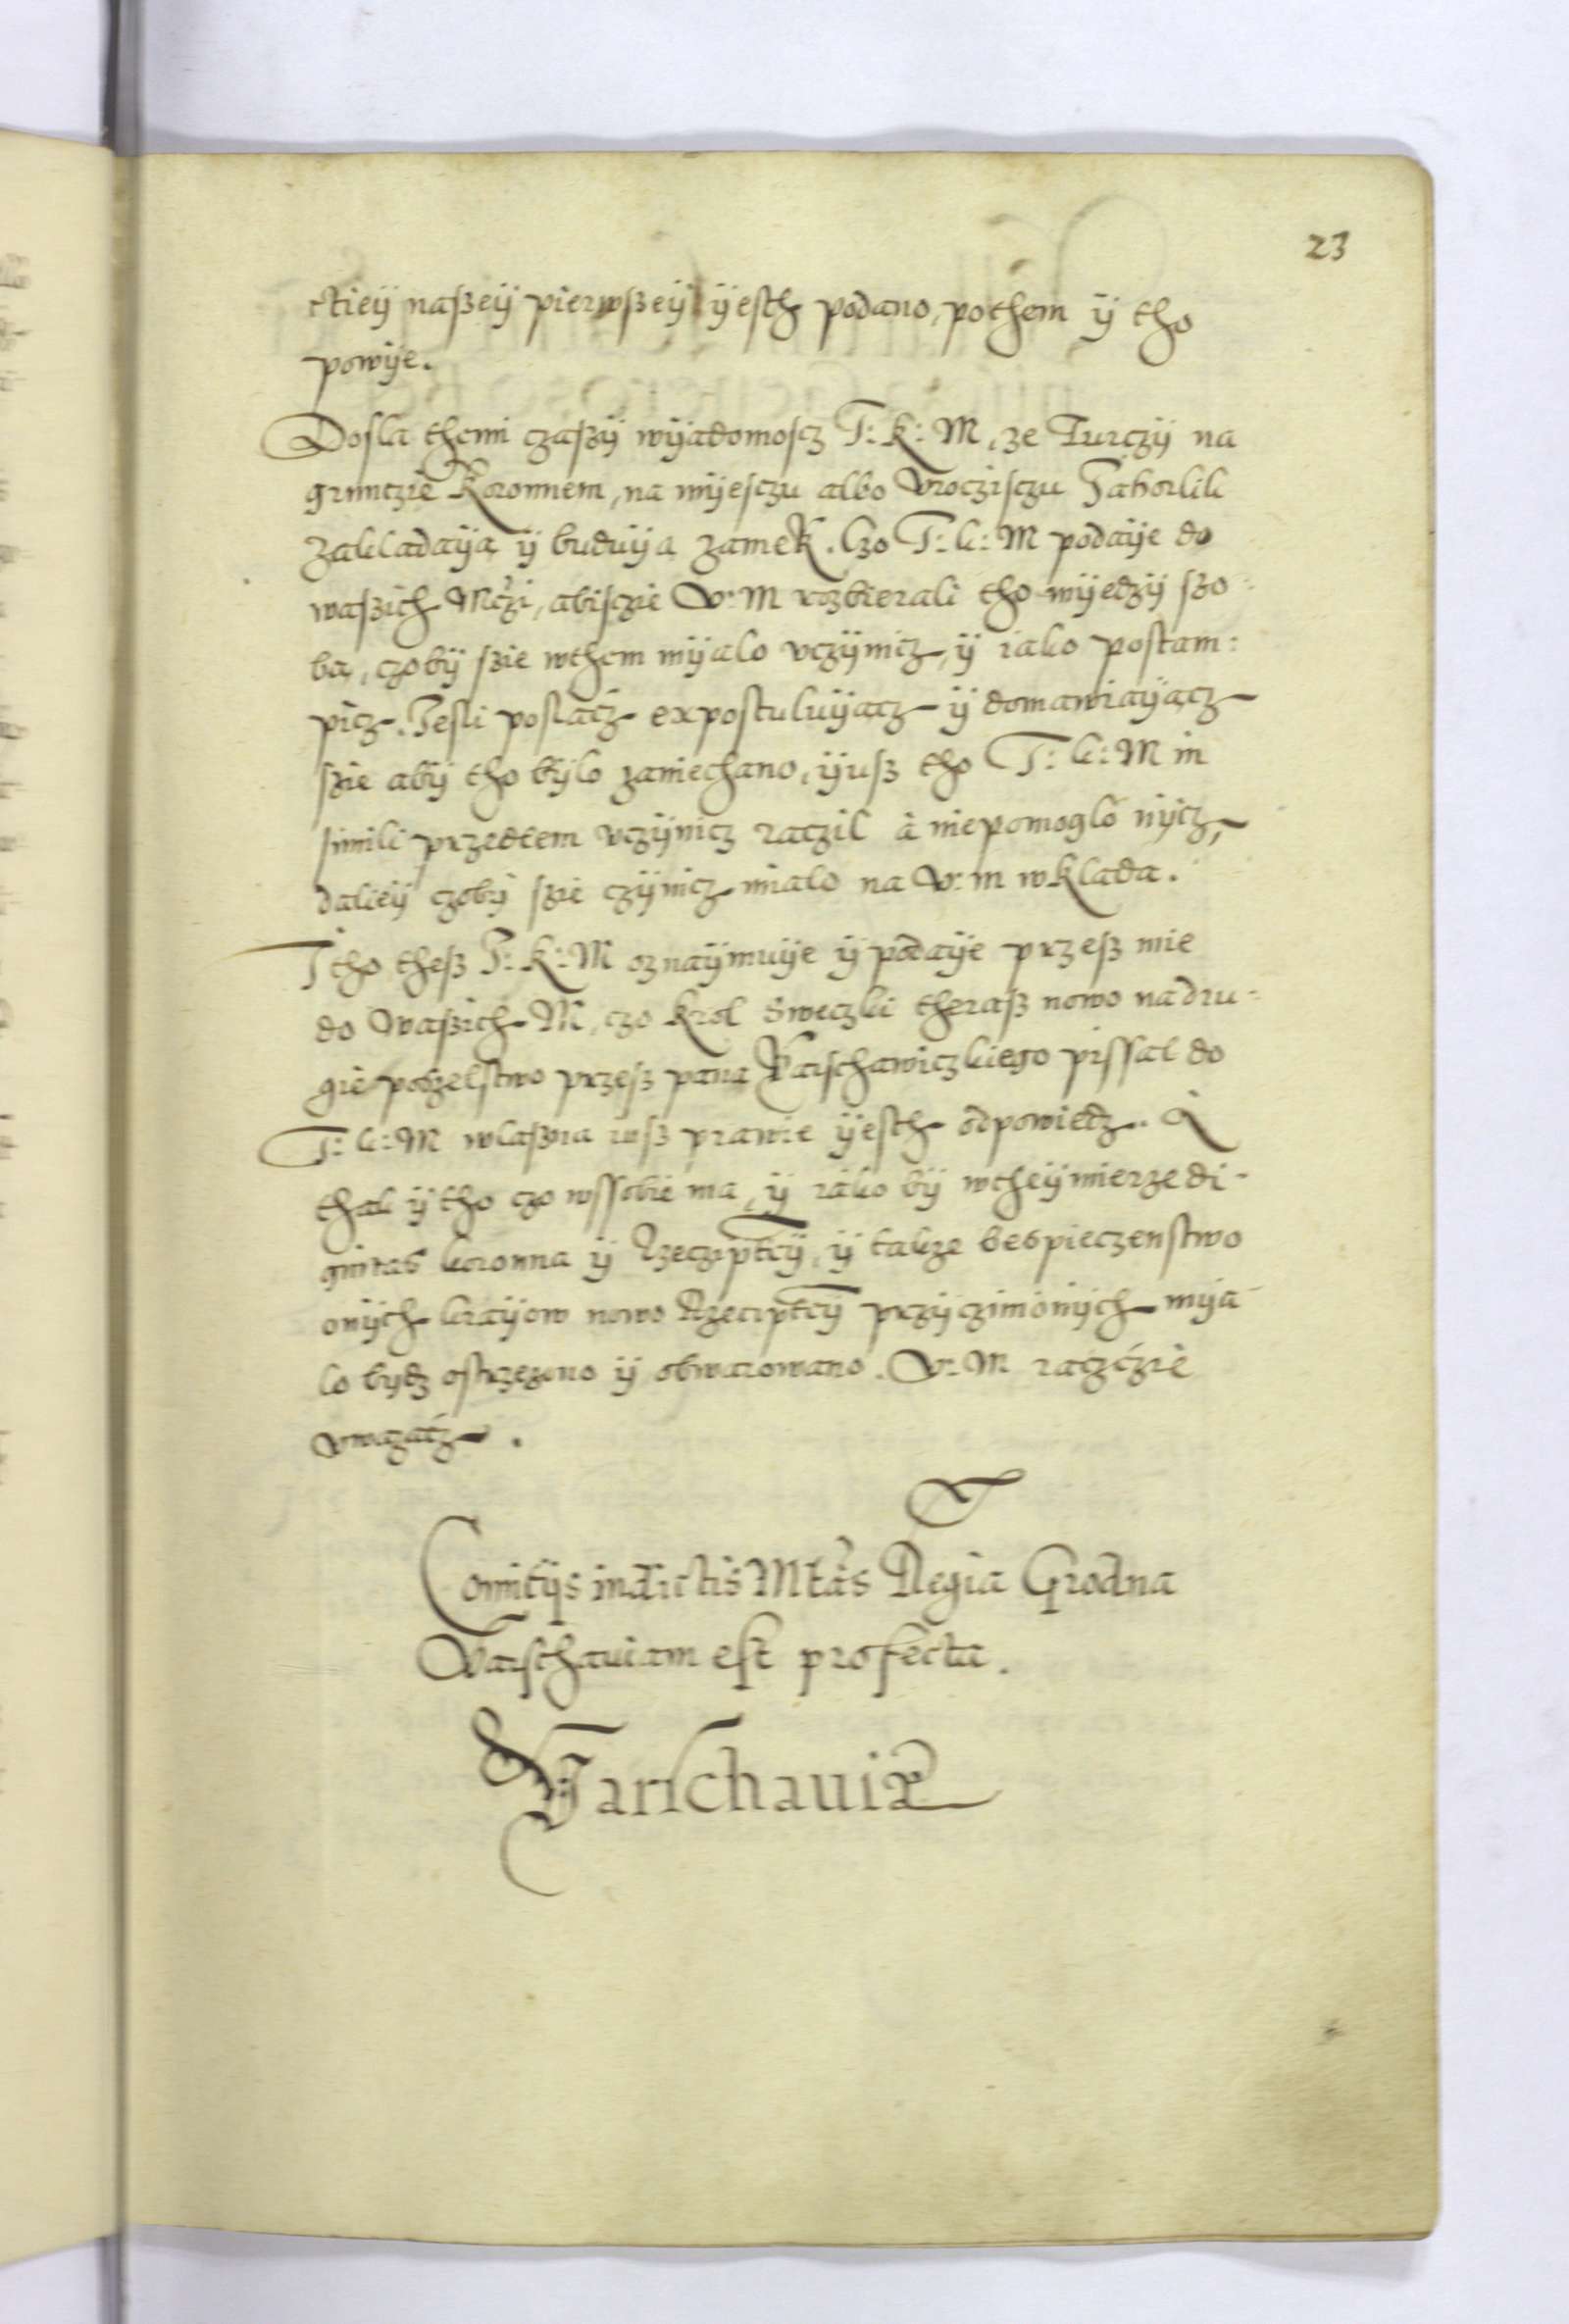 23
ctieÿ naßeÿ pierwßeÿ ÿesth podano, pothem ÿ tho
powÿe.
Dosla themi czaßÿ wÿadomoscz J: K: M, ze Turczÿ na
grunczie Koronnem, na mÿesczu albo Vroczisczu Jahorlik
zakladaÿą ÿ buduÿą zameK. Czo J: k: M podaÿe do
waßich Mczi, abisczie V: M rozbierali tho mÿedzÿ szo-
bą, czobÿ szie wthem mÿalo vczÿnicz, ÿ iako postam:
picz. Jesli poslacz expostuluÿącz ÿ domawiaÿącz
szie abÿ tho bÿlo zaniechano, ÿuß tho J: k: M in
simili przedtem vczÿnicz raczil à niepomoglo nÿcz,
dalieÿ czobÿ szie czÿnicz mialo na V: m wKlada.
J tho theß J: K: M oznaÿmuÿe ÿ podaÿe przeß mie
do Waßich M, czo Krol Sweczki theraß nowo na dru-
gie poszelstwo przeß pana Warschawiczkiego pissal do
J: k: M wlaszna iuß prawie ÿesth odpowiedz. A
thak ÿ tho czo wssobie ma, ÿ iako bÿ wtheÿ mierze di-
gnitas koronna ÿ Rzeczipteÿ, ÿ takze bespieczenstwo
onÿch kraÿow nowo Rzeciptcÿ przÿczinionÿch mÿa-
lo bydz ostrzezono ÿ obwarowano. V: M raczczie
vwazacz.
Comitÿs indictis Mtas Regia Grodna
Varschauiam est profecta.
Varschauiæ